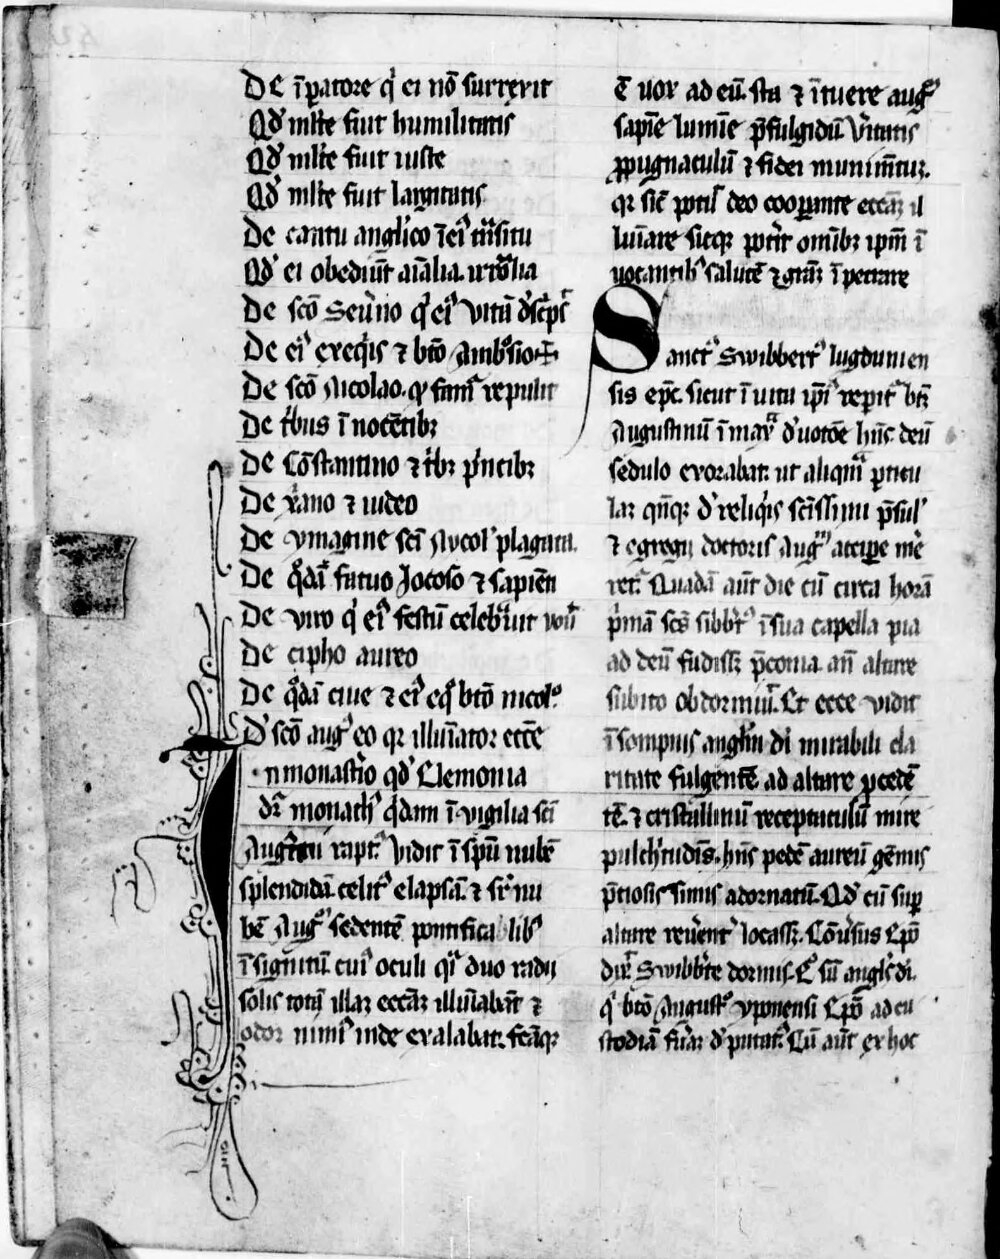 De īpatore q̍ ei nō surrexit
Qd̍ mlte̅ fuit humilitatis
Qd̍ mlte̅ fuit iuste
Qd̍ mlte̅ fuit largitatis
De cantu anglico ī ei᷒ trāsitu
Qd̍ ei obediūt aīalia
De scō Seuīno q̍ ei᷒ vitā
De ei᷒ exeq̍is ⁊ btō Amb᷒sio
De scō Nicolao q famē repulit
De t̍bus īnocētibꝫ
De Cōstantino ⁊ t̍bꝫ p̍ncibꝫ
De x̄ano ⁊ iudeo
De ymagine scī Nycol᷒ plagata
De q̄dā fatuo Jocoso ⁊ sapiēti
De viro q̍ ei᷒ festū celebrāuit
De cipho aureo
De q̄dā ciue ⁊ ei᷒ eq̊ btō nicol᷒
D̍ scō aug᷒ eo qꝛ illuīator eccē
In monastīo qd̍ Elemonia
dr̄ monach᷒ q̍dam ī vigilia scī
Augustini rapt᷒ vidit ī spū nubē
splendidā celit᷒ elapsā ⁊ sr̄ nu
bē Aug᷒ sedentē pontificalib᷒
īsignitū cui᷒ oculi q̍i duo radij
solis totā illaꝫ eccāꝫ illuīabāt ⁊
odor nimi᷒ inde exalabat. fcāqꝫ
Ē uox ad eū. sta ⁊ ītuere aug᷒
sapīe lumīe p̄fulgidū v̍itatis
ꝓpugnaculū ⁊ fidei munimētū.
qꝛ sic̄ potu᷒ deo coopante eccāꝫ il
luīare sicqꝫ pot̍it omībꝫ ip̄m ī
uocantib᷒ salutē ⁊ grāꝫ īpetrare
Sanct᷒ Swibbert᷒ lugdunen
sis ep̄c. sicut ī uita ip̄i᷒ repit᷒ btꝫ
Augustinū ī mayª d̍uotōe hn̄s deū
sedulo exorabat. ut aliquā pticu
lar̄ d̍ reliq̍is scīssimi p̄sul᷒
⁊ egregij doctoris Aug᷒ accipe me
ret᷒. Quadā aūt die cū circa horā
p̍mā scs̄ sibbt᷒ ī sua capella pia
ad deū fudissꝫ p̄conia. an̄ altare
subito obdormiuit. Et ecce vidit
ī sompnis anglm̄ dī mirabili cla
ritate fulgentē ad altare pcedē
tē. ⁊ cristallinū receptaculū mire
pulch̍tudīs. hn̄s pedē aureū gēmis
p̄tiosissimis adornatū. Qd̍ cū sup
altare reu̍ent̍ locassꝫ. Cōu̍sus Ep̄o
dix̄. Swibbte dormis. Ego sū angl̄s dī
q̍ btō August᷒ yponensi Ep̄o ad cu
stodiā fu̍aꝫ d̍putat᷒. Cū aūt ex hoc